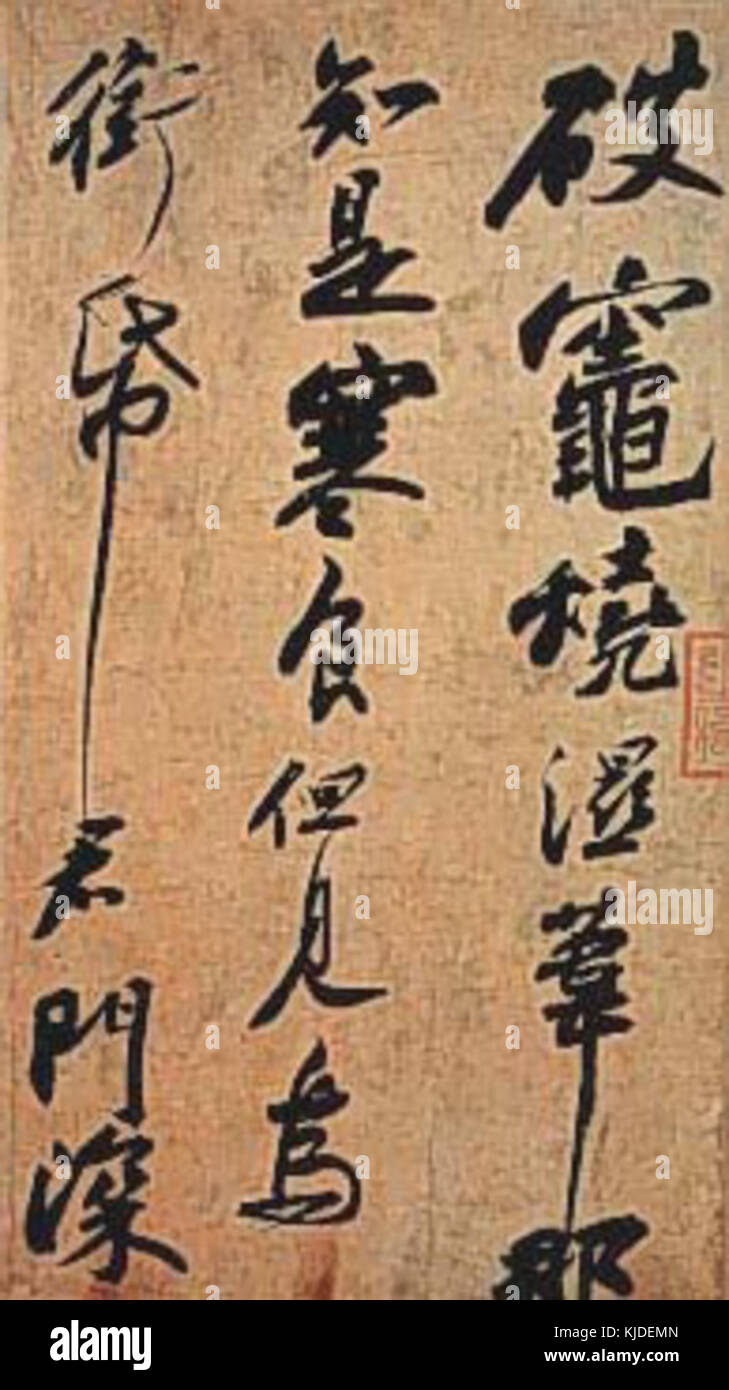 破竈燒濕葦那
知是寒食但見烏
銜帋君門深
alamy
alamy
alamy
alamy
Image ID: KJDEMN
www.alamy.com